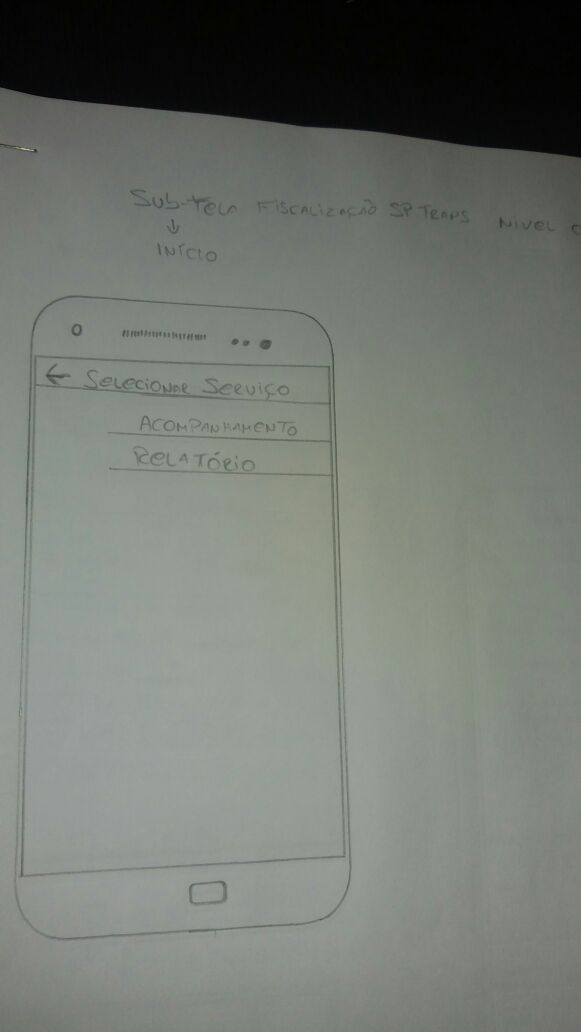 Sub-Tela Fiscalização SP Trans Nivel
↓
Início
← Selecionar Serviço
Acompanhamento
Relatório